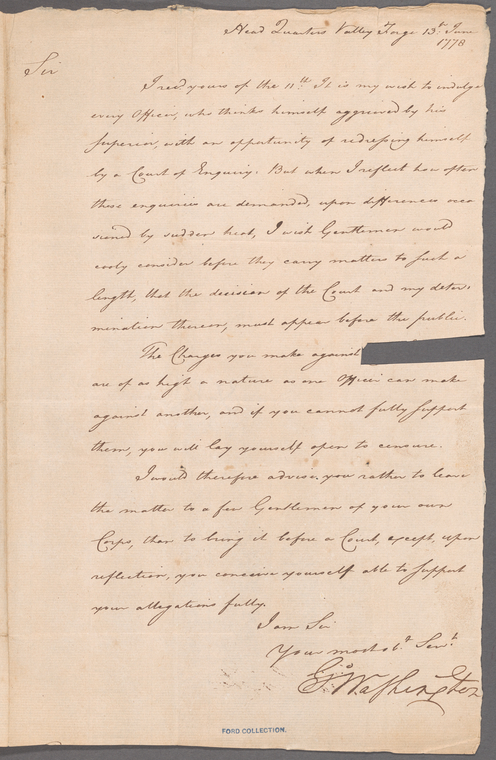 Head Quarters Valley Forge 13th June
1778
Sir
I recd yours of the 11th. It is my wish to indulge
every Officer, who thinks himself aggrieved by his
superior, with an opportunity of redressing himself
by a Court of Enquiry. But when I reflect how often
these enquiries are demanded, upon differences occa
sioned by sudden heat, I wish Gentlemen would
cooly consider before they carry matters to such a
length, that the decision of the Court and my deter-
mination thereon, must appear before the public.
The Charges you make against
are of as high a nature as one Officer can make
against another, and if you cannot fully support
them, you will lay yourself open to censure.
I would therefore advise you rather to leave
the matter to a few Gentlemen of your own
Corps, than to bring it before a Court, except, upon
reflection, you conceive yourself able to support
your allegations fully.
I am Sir
Your most obt Servt
Go Washington
FORD COLLECTION.